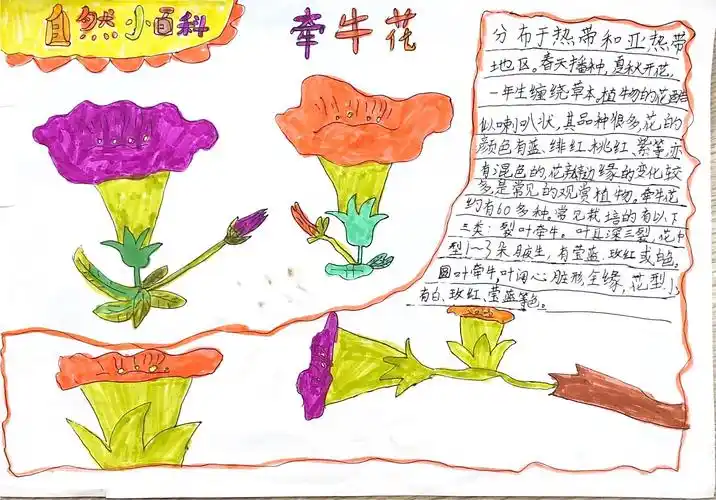 自然小百科
牵牛花
分布于热带和亚热带
地区。春天播种,夏秋开花,
一年生缠绕草本。植物的花酷
似喇叭状,其品种很多,花的
颜色有蓝、绯红、桃红、紫等,亦
有混色的,花瓣边缘的变化较
多,是常见的观赏植物。牵牛花
约有60多种。常见栽培的有以下
三类:裂叶牵牛。叶具深三裂,花中
型1~3朵腋生,有莹蓝、玫红或白色。
圆叶牵牛,叶阔心脏形,全缘,花型小,
有白、玫红、莹蓝等色。